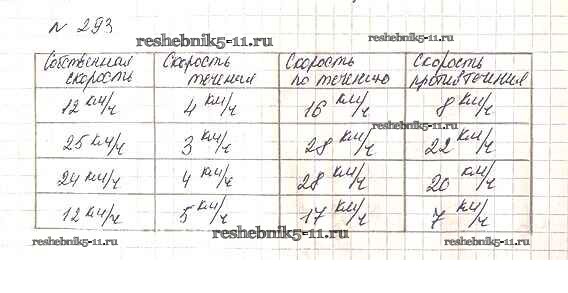 N 293
reshebnik5-11.ru
reshebnik5-11.ru
Собственная скорость Скорость течения Скорость по течению Скорость против течения
12 км/ч 4 км/ч 16 км/ч 8 км/ч
reshebnik5-11.ru
25 км/ч 3 км/ч 28 км/ч 22 км/ч
24 км/ч 4 км/ч 28 км/ч 20 км/ч
12 км/ч 5 км/ч 17 км/ч 7 км/ч
reshebnik5-11.ru
reshebnik5-11.ru
reshebnik5-11.ru